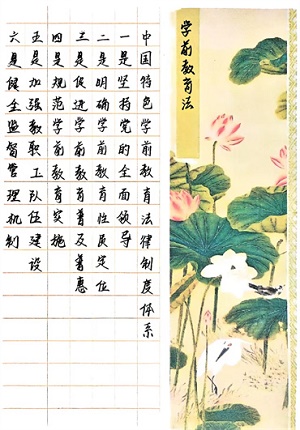 学前教育法
中国特色学前教育法律制度体系
一是坚持党的全面领导
二是明确学前教育性质定位
三是促进学前教育普及普惠
四是规范学前教育实施
五是加强教职工队伍建设
六是健全监督管理机制